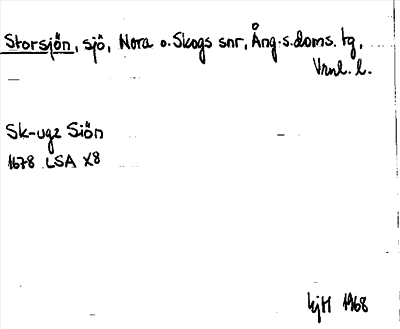 Storsjön, sjö, Nora o. Skogs snr, Ång. s. doms. tg,
Vrnl. l.
Sk-ugz Siön
1678 LSA X8
KjH 1968